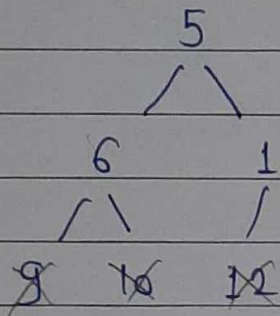 5
6 1
9 10 12